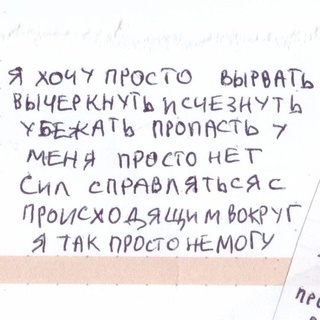 Я ХОЧУ ПРОСТО ВЫРВАТЬ
ВЫЧЕРКНУТЬ ИСЧЕЗНУТЬ
УБЕЖАТЬ ПРОПАСТЬ У
МЕНЯ ПРОСТО НЕТ
СИЛ СПРАВЛЯТЬСЯ С
ПРОИСХОДЯЩИМ ВОКРУГ
Я ТАК ПРОСТО НЕ МОГУ